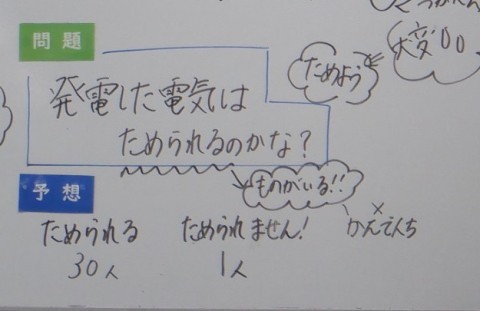 問題
発電した電気は
ためられるのかな?
ためよう
大変
予想
ものがいる!!
ためられる
30人
ためられません!
1人
×
かんでんち